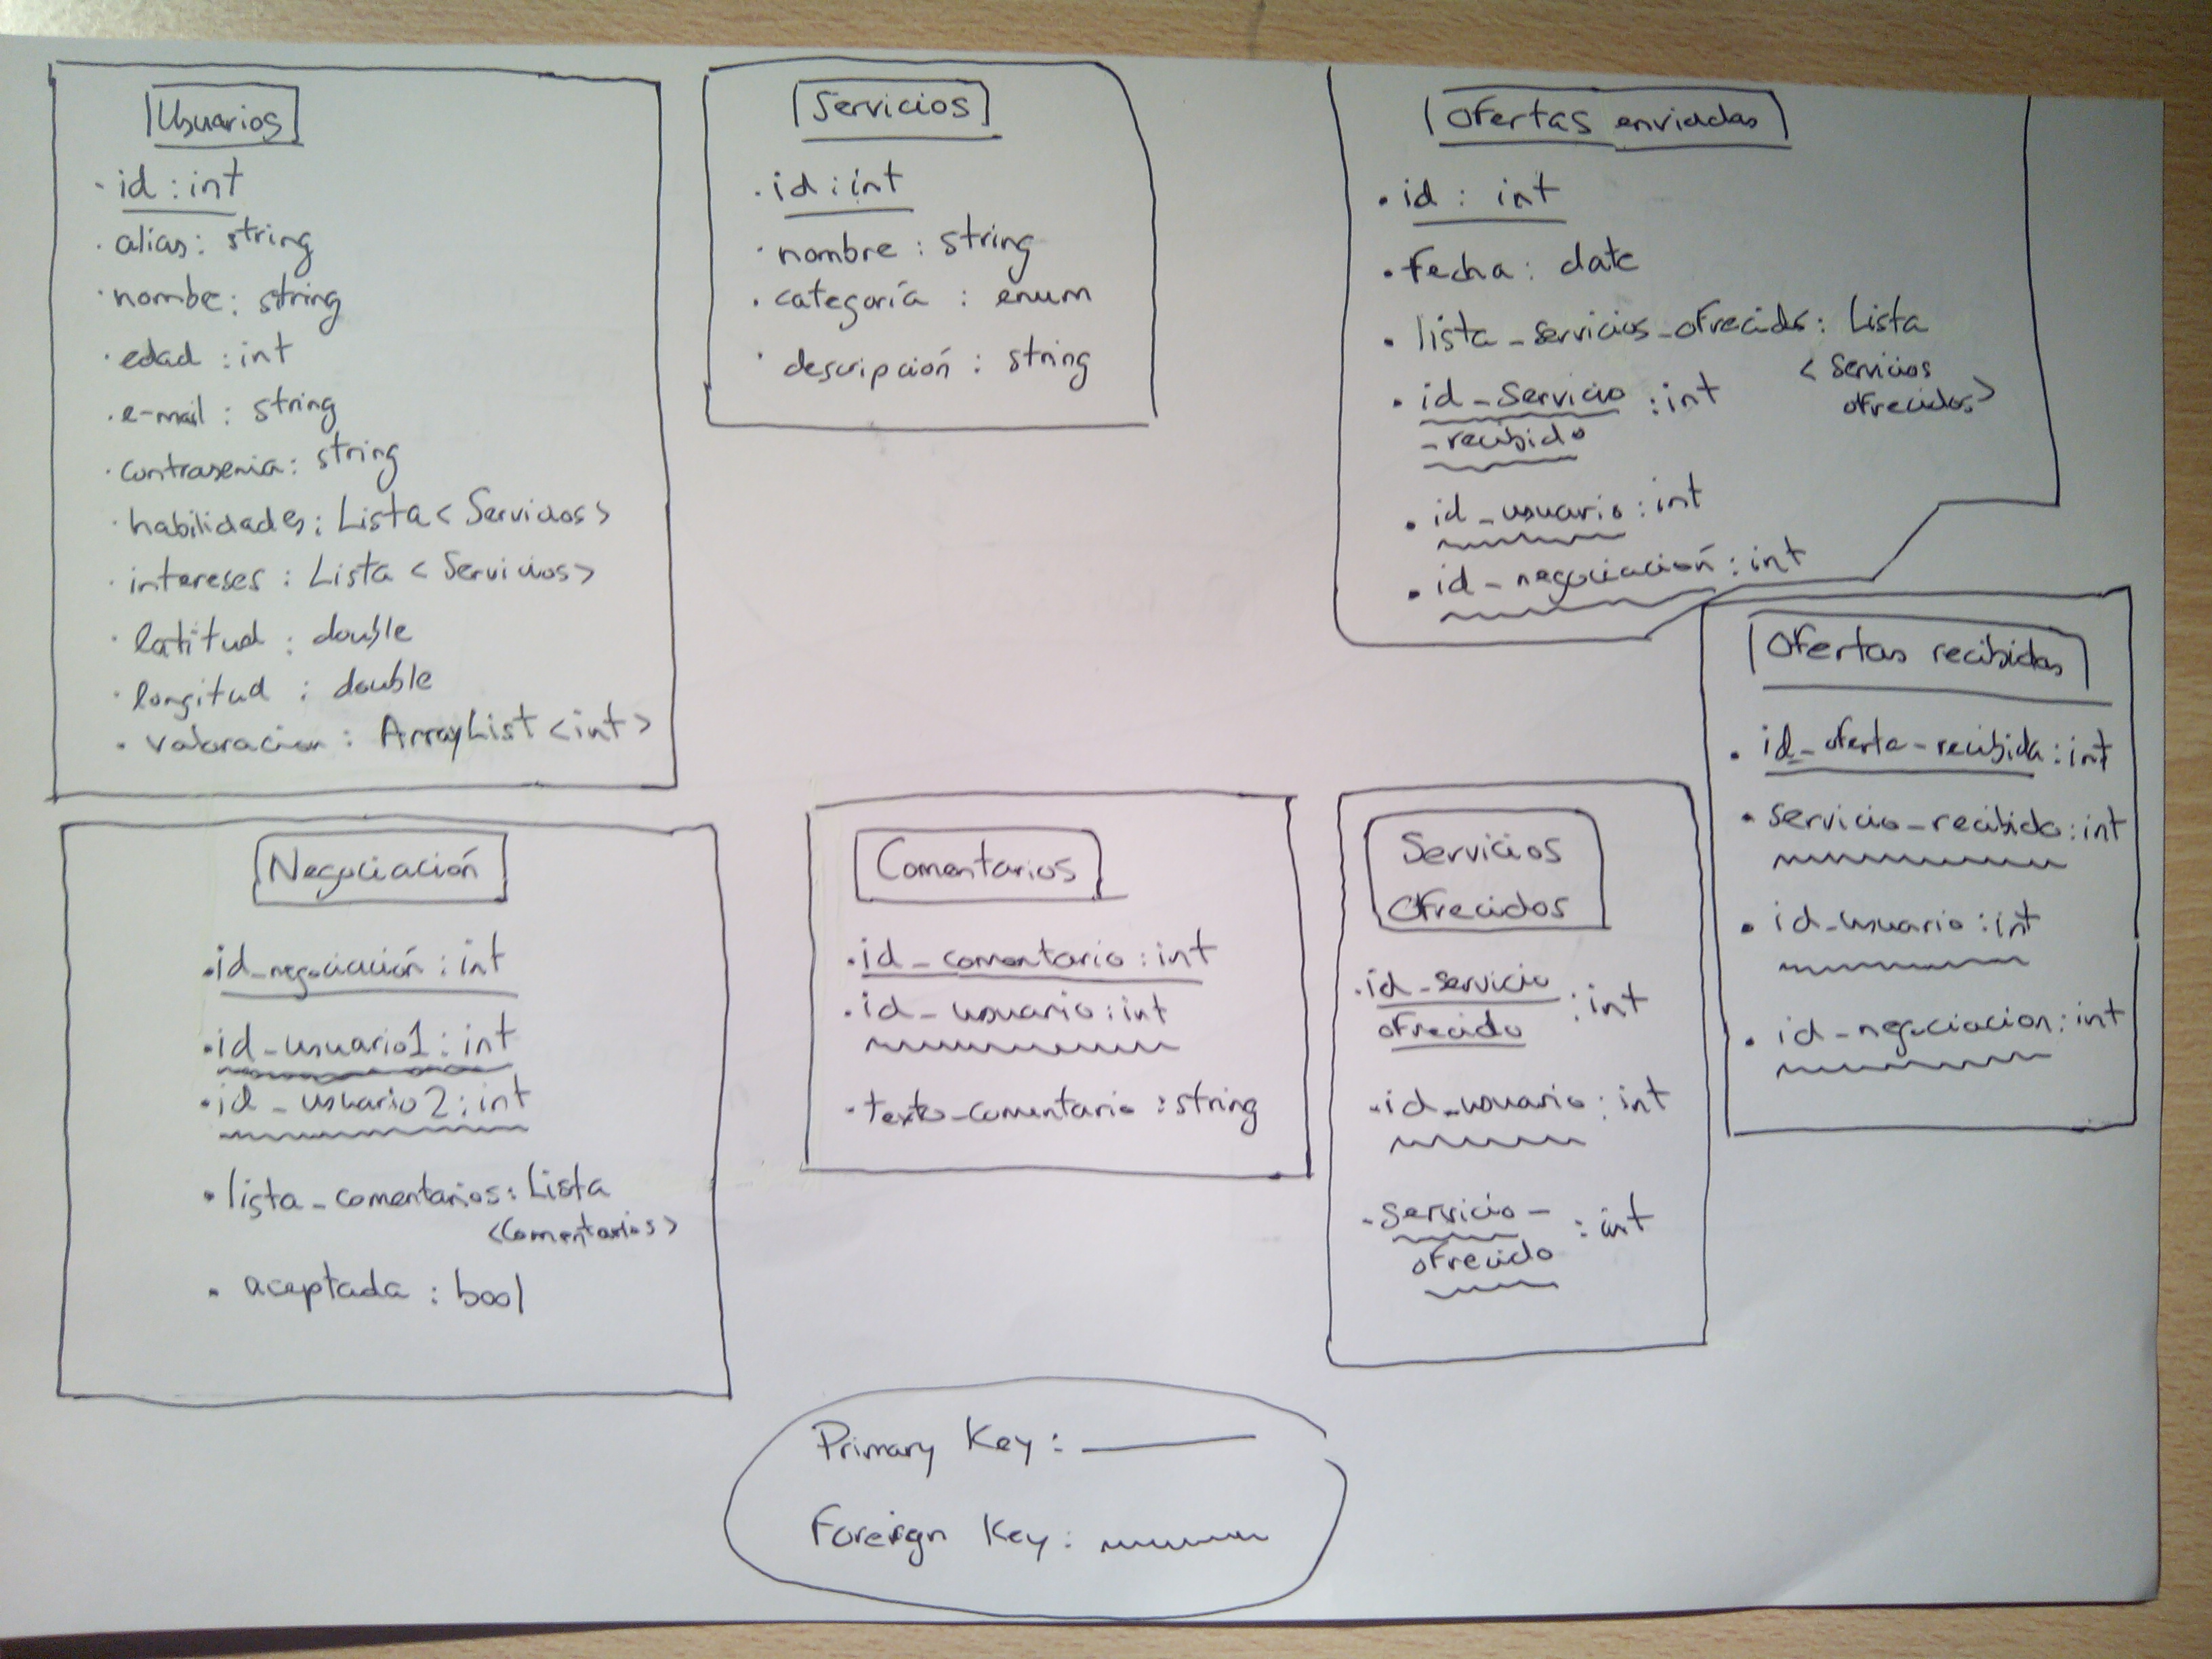 Usuarios
· id : int
· alias : string
· nombe : string
· edad : int
· e-mail : string
· contrasenia : string
· habilidades : Lista < Servicios >
· intereses : Lista < Servicios >
· latitud : double
· longitud : double
· valoracion : ArrayList <int>
Servicios
· id : int
· nombre : string
· categoría : enum
· descripción : string
Ofertas enviadas
· id : int
· Fecha : date
· lista_servicios_ofrecidos : Lista
< Servicios
ofrecidos >
· id_servicio : int
_recibido
· id_usuario : int
· id_negociación : int
Ofertas recibidas
· id_oferta_recibida : int
· servicio_recibido : int
· id_usuario : int
· id_negociacion : int
Negociación
· id_negociación : int
· id_usuario1 : int
· id_usuario2 : int
· lista_comentarios : Lista
<Comentarios>
· aceptada : bool
Comentarios
· id_comentario : int
· id_usuario : int
· texto_comentario : string
Servicios
Ofrecidos
· id_servicio : int
ofrecido
· id_usuario : int
· servicio_ : int
ofrecido
Primary Key :
Foreign Key :